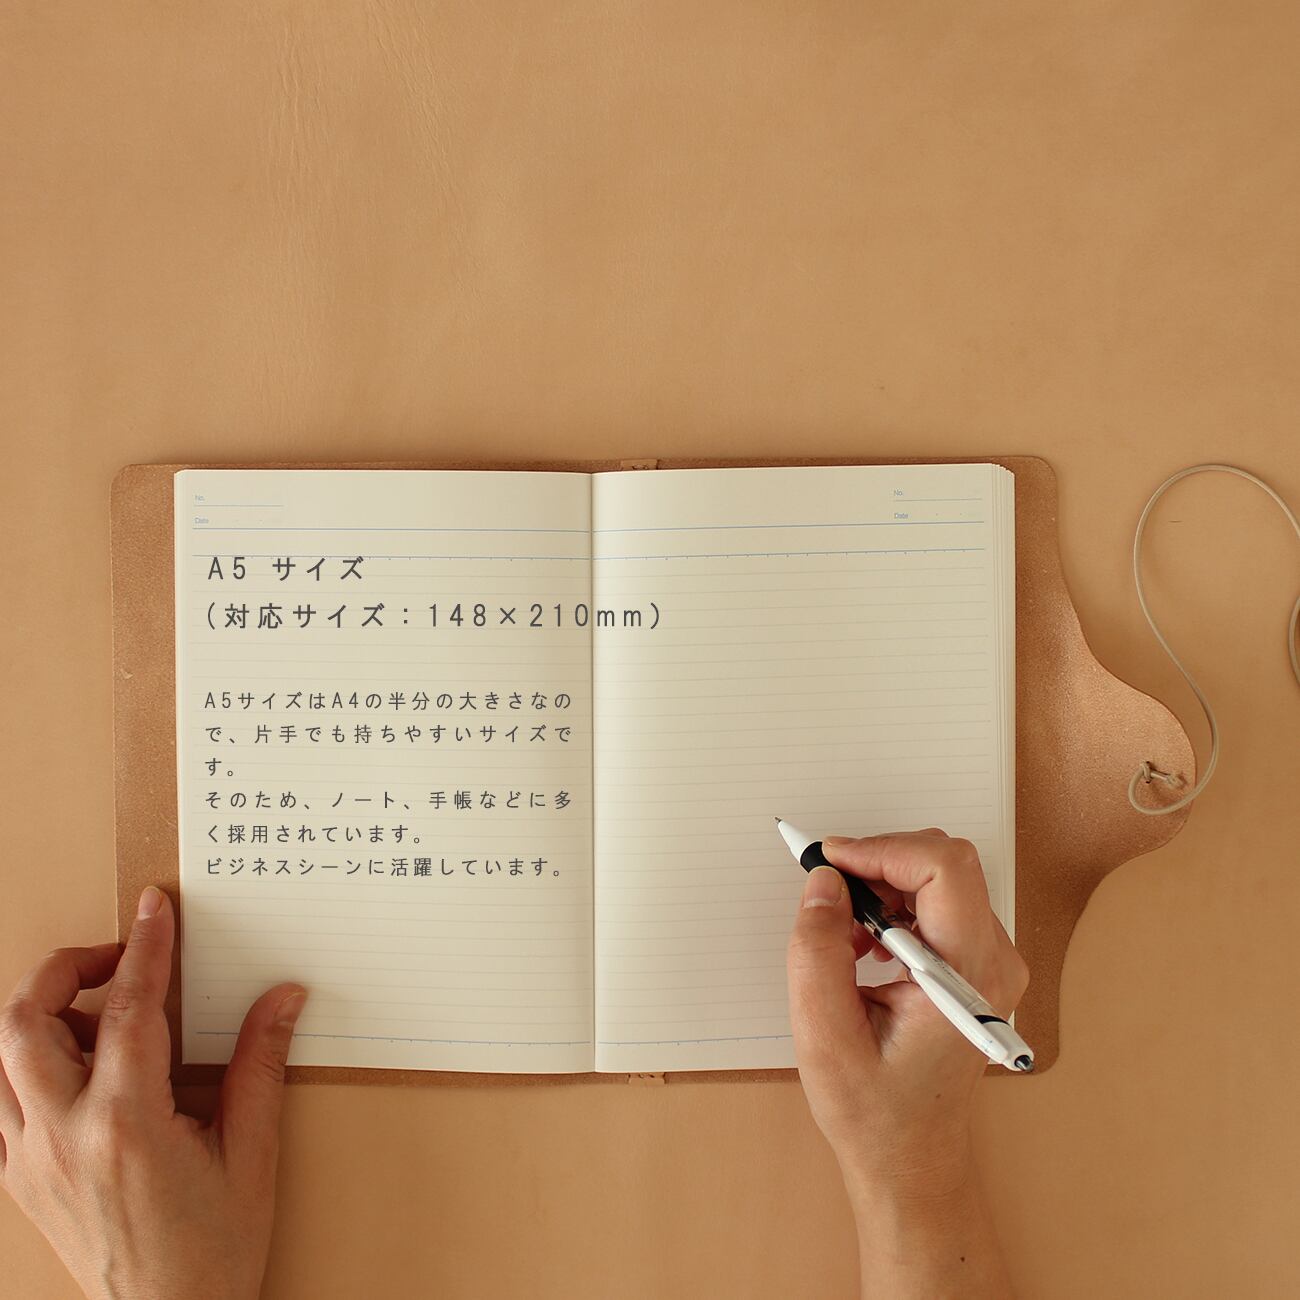 No.
Date
No.
Date
A5 サイズ
(対応サイズ：148×210mm)
A5サイズはA4の半分の大きさなの
で、片手でも持ちやすいサイズで
す。
そのため、ノート、手帳などに多
く採用されています。
ビジネスシーンに活躍しています。